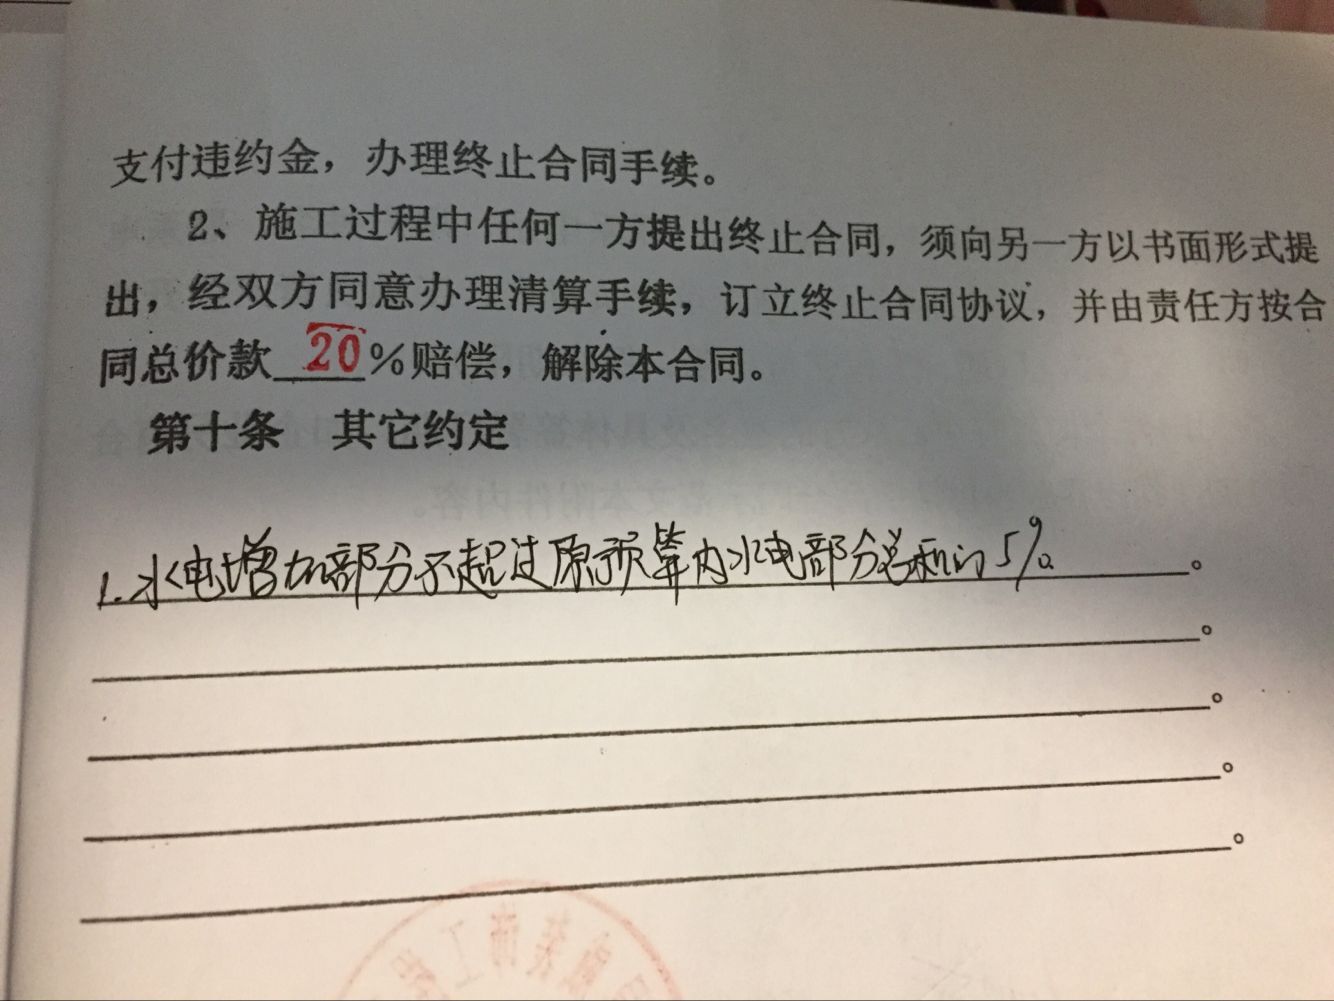 支付违约金，办理终止合同手续。
2、施工过程中任何一方提出终止合同，须向另一方以书面形式提
出，经双方同意办理清算手续，订立终止合同协议，并由责任方按合
同总价款20%赔偿，解除本合同。
第十条 其它约定
1.水电增加部分不超过原预算内水电部分总和的5%。
。
。
。
。
装饰工程